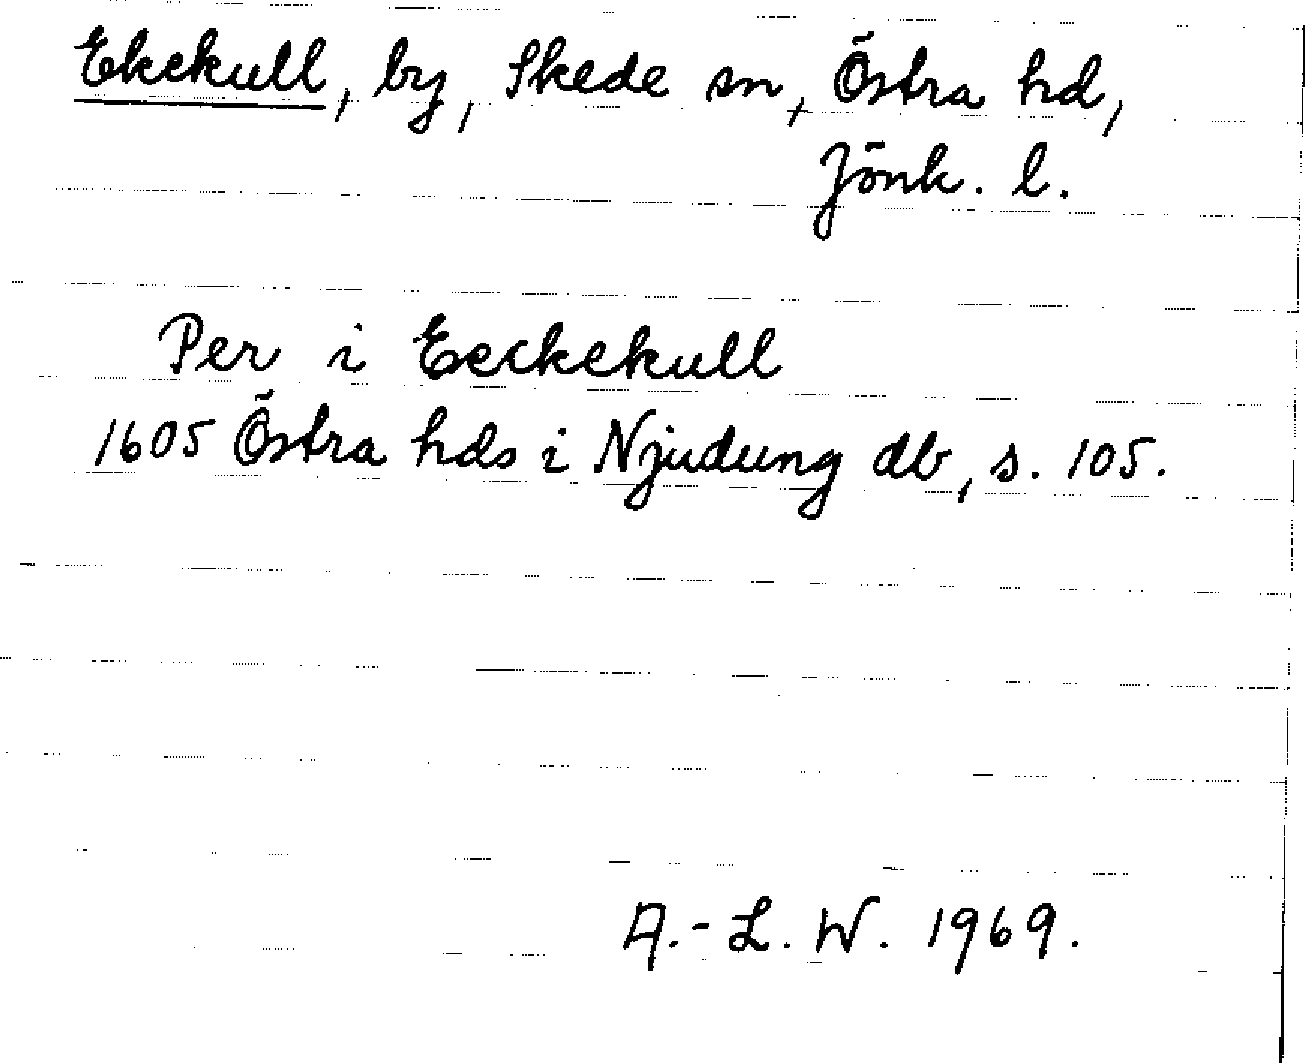 Ekekull, by, Skede sn, Östra hd,
Jönk. l.
Per i Eeckekull
1605 Östra hds i Njudung db, s. 105.
A.-L. W. 1969.